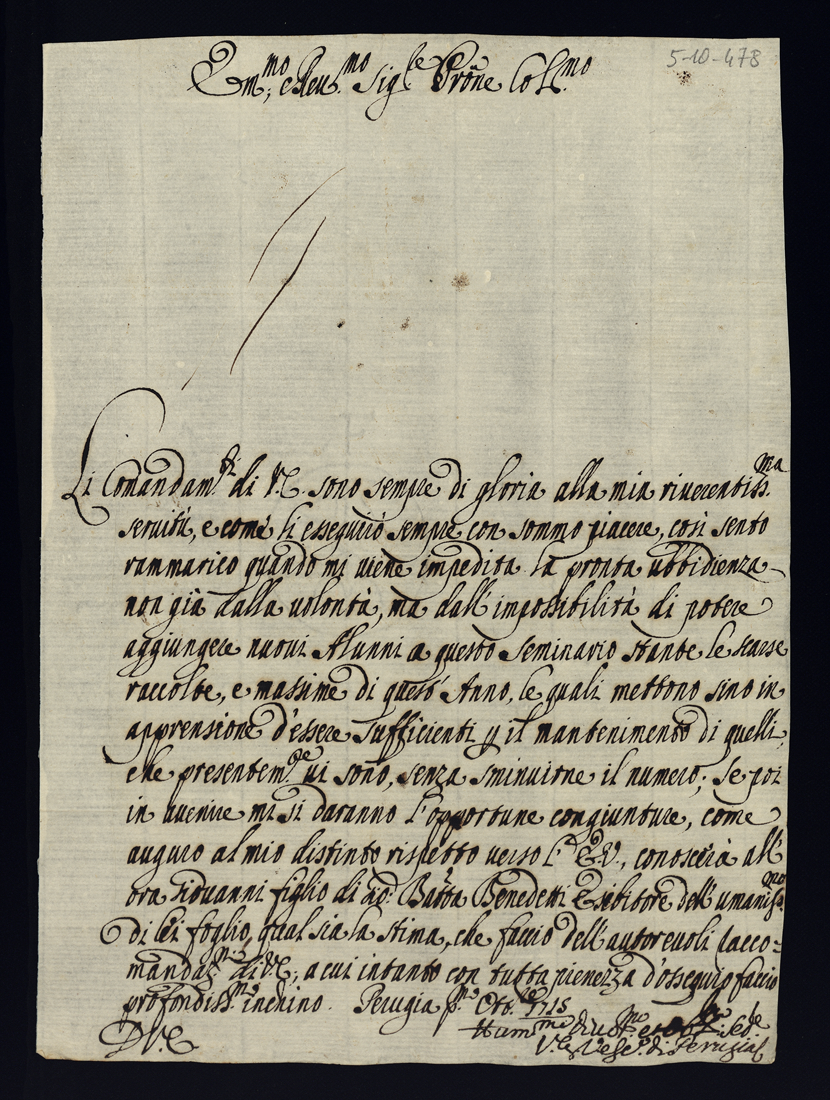 5-10-478
Em.mo, e Reu.mo Sig.re Prõne Col.mo
Li Comandam.ti di V.E. sono sempre di gloria alla mia riuerentiss.ma
seruitù, e come li esseguirò sempre con sommo piacere, così sento
rammarico quando mi uiene impedita la pronta ubbidienza
non già dalla uolontà, ma dall'impossibilità di potere
aggiungere nuoui Alunni a questo Seminario stante le scarse
raccolte, e massime di quest'Anno, le quali mettono sino in
apprensione d'essere sufficienti p il mantenimento di quelli,
che presentem.te ui sono, senza sminuirne il numero; Se poi
in auenire mi si daranno l'opportune congiunture, come
auguro al mio distinto rispetto verso l' E.V., conoscerà all'
ora Giouanni figlio di Gio: Batta Benedetti Esibitore dell'umaniss.mo
di Lei foglio, qual sia la stima, che faccio dell'autoreuoli racco-
mandaz.ni di V.E., a cui intanto con tutta pienezza d'ossequio faccio
profondiss.mo inchino. Perugia p.mo Ott.re 1715
D.V.E.
Hum.mo Diuot.mo et Obl.mo Se.re
V. Vesc.o di Perugia